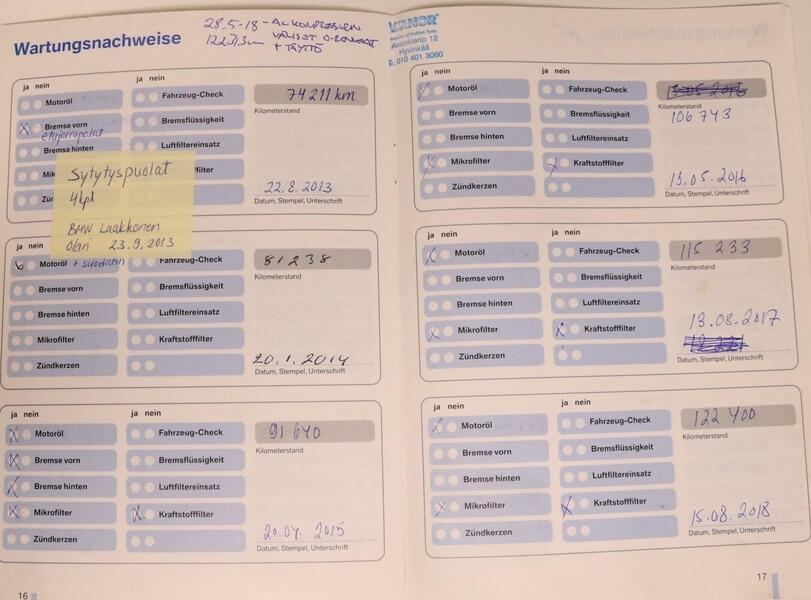 Wartungsnachweise
28.5-18 - AC KOMPRESSORN
VÄLISET O-RENKAAT
+ TÄYTTÖ
VIANOR
Avainkierto 12
Hyvinkää
p. 010 401 3060
ja nein
ja nein
Motoröl
Fahrzeug-Check
74211 km
Bremse vorn
Bremsflüssigkeit
Kilometerstand
etujarrupalat
Bremse hinten
Luftfiltereinsatz
22.8.2013
Datum, Stempel, Unterschrift
Sytytyspuolat
4 kpl
BMW Laakkonen
Olari 23.9.2013
ja nein
Motoröl + suodatin
Fahrzeug-Check
81238
Kilometerstand
Bremse vorn
Bremsflüssigkeit
Bremse hinten
Luftfiltereinsatz
Mikrofilter
Kraftstofffilter
20.1.2014
Zündkerzen
Datum, Stempel, Unterschrift
ja nein
ja nein
Motoröl
Fahrzeug-Check
91 640
Kilometerstand
Bremse vorn
Bremsflüssigkeit
Bremse hinten
Luftfiltereinsatz
Mikrofilter
Kraftstofffilter
20.04. 2015
Zündkerzen
Datum, Stempel, Unterschrift
16
ja nein
ja nein
Motoröl
Fahrzeug-Check
Kilometerstand
106 743
Bremse vorn
Bremsflüssigkeit
Bremse hinten
Luftfiltereinsatz
Mikrofilter
Kraftstofffilter
13.05.2016
Zündkerzen
Datum, Stempel, Unterschrift
ja nein
ja nein
Motoröl
Fahrzeug-Check
115 233
Kilometerstand
Bremse vorn
Bremsflüssigkeit
Bremse hinten
Luftfiltereinsatz
Mikrofilter
Kraftstofffilter
13.08.2017
Zündkerzen
Datum, Stempel, Unterschrift
ja nein
ja nein
Motoröl
Fahrzeug-Check
122 400
Kilometerstand
Bremse vorn
Bremsflüssigkeit
Bremse hinten
Luftfiltereinsatz
Mikrofilter
Kraftstofffilter
15.08.2018
Zündkerzen
Datum, Stempel, Unterschrift
17